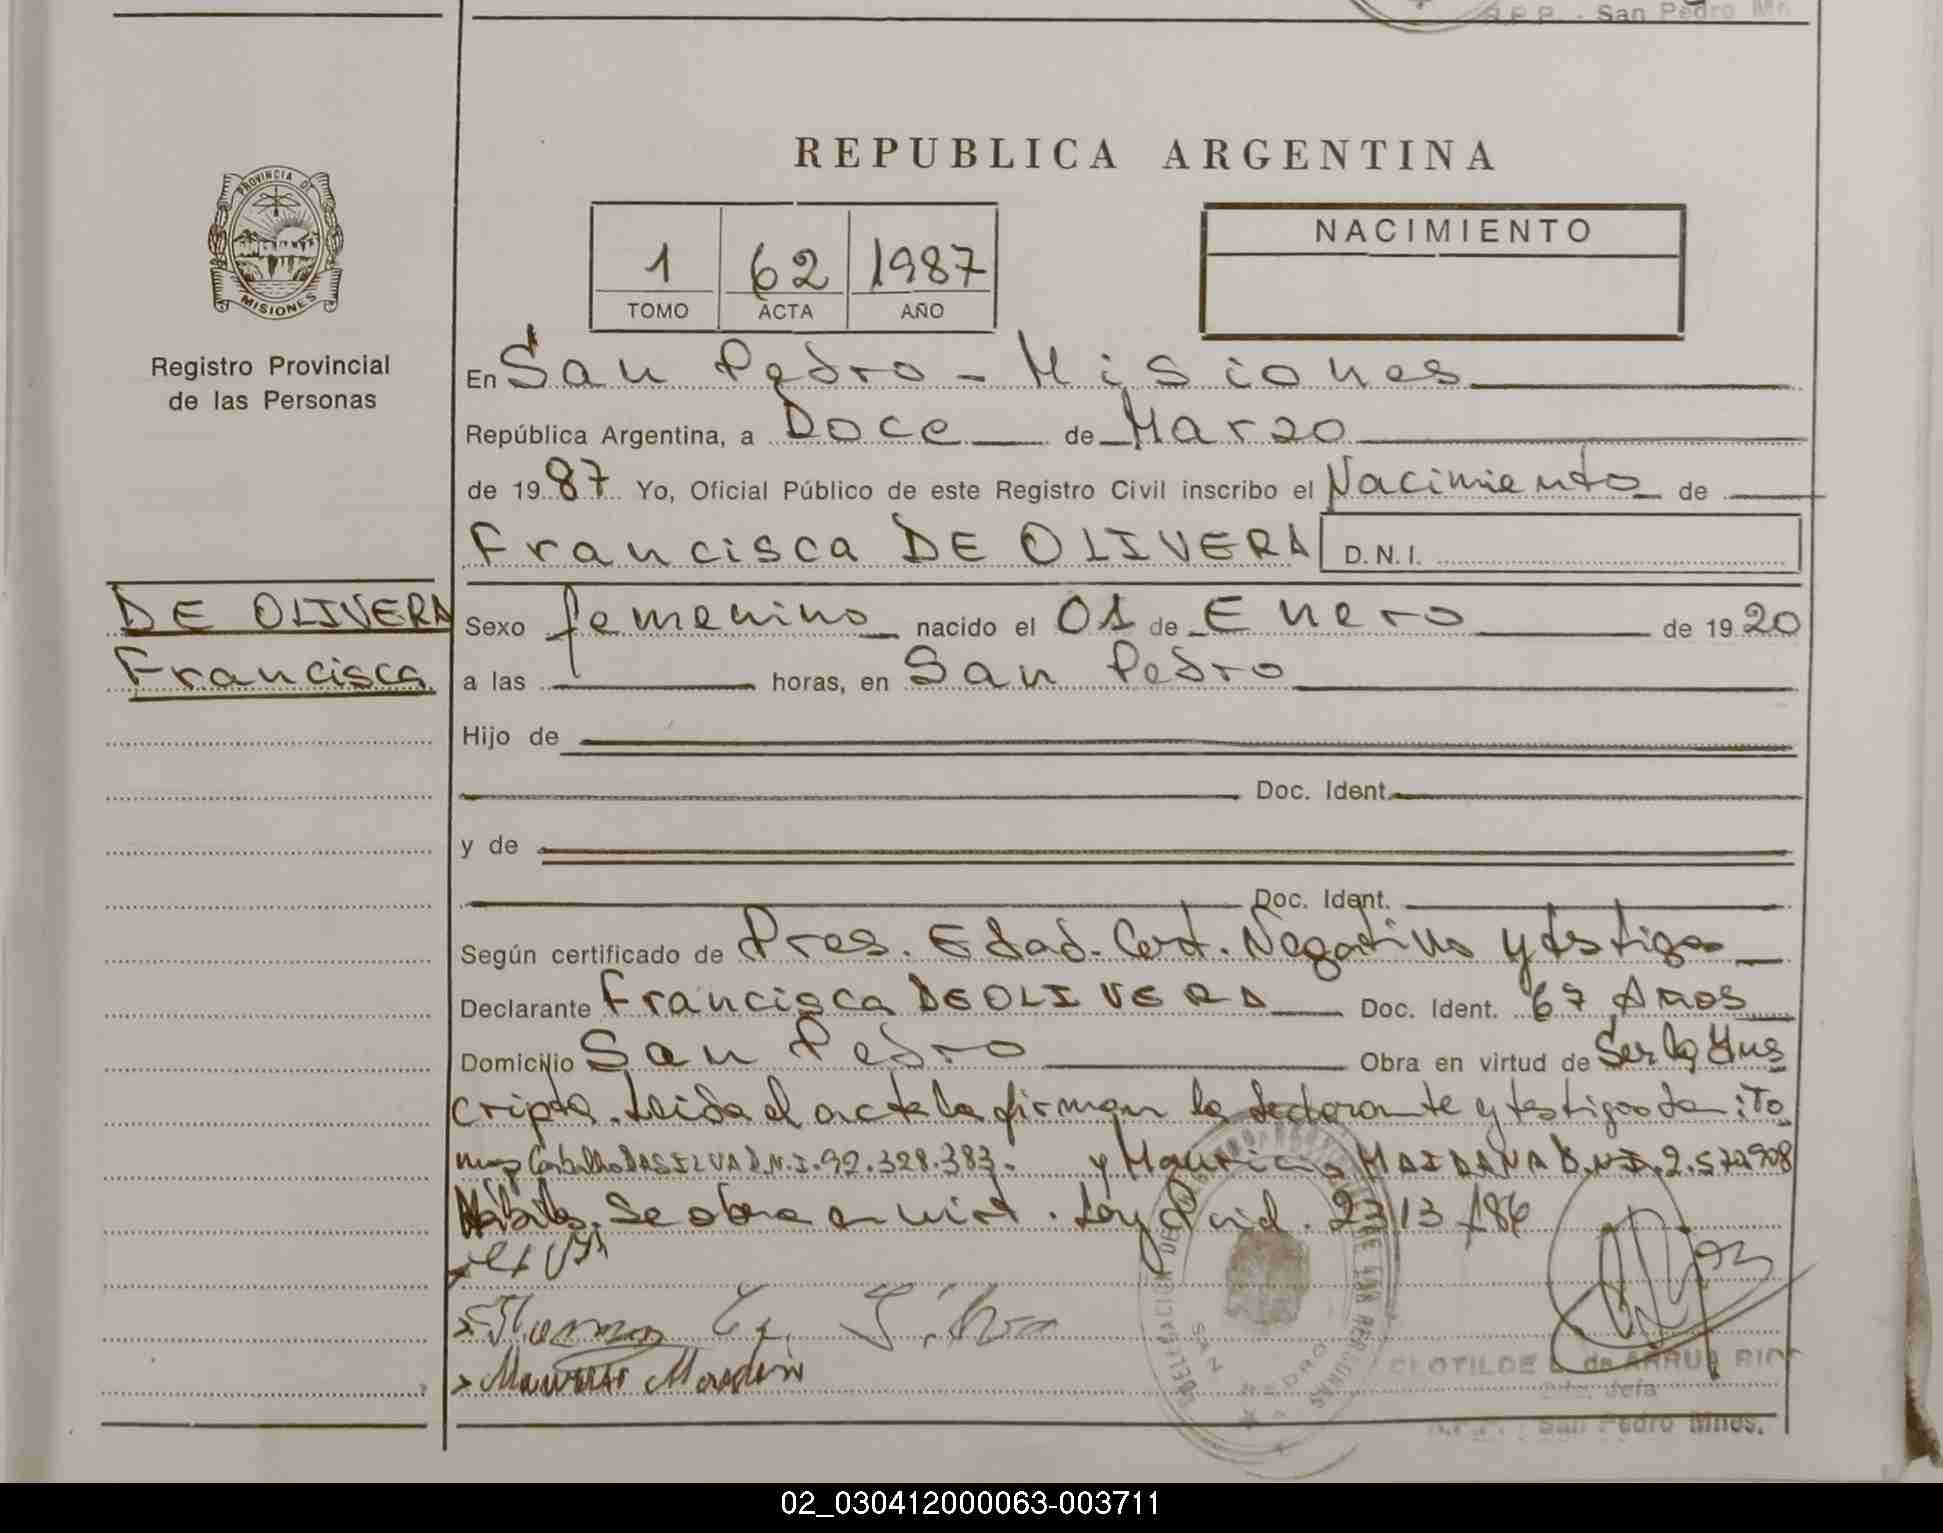 A.P.P. - San Pedro Mn
REPUBLICA ARGENTINA
PROVINCIA DE
MISIONES
Registro Provincial
de las Personas
1 62 1987
TOMO ACTA AÑO
NACIMIENTO
En San Pedro - Misiones
República Argentina, a Doce de Marzo
de 1987 Yo, Oficial Público de este Registro Civil inscribo el Nacimiento de
Francisca DE OLIVERA D.N.I.
DE OLIVERA
Francisca
Sexo femenino nacido el 01 de Enero de 1920
a las horas, en San Pedro
Hijo de
Doc. Ident.
y de
Doc. Ident.
Según certificado de Pres. Edad. Cert. Negativo y testigos
Declarante Francisca DE OLIVERA Doc. Ident. 67 Anos
Domicilio San Pedro Obra en virtud de Ser la Yns
cripta. Leida el acta la firman la declarante y testigos
DASILVA D.N.I. 92.328.383. y Mauricio MAIDANA D.N.I. 2.577.908
Se obra en virt. Ley 2313/86
CLOTILDE de ARRUA
Jefa
A.P.P. San Pedro Mnes.
SAN PEDRO
02_030412000063-003711